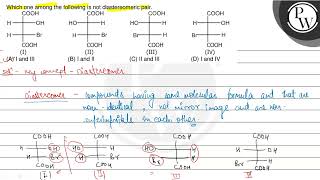 Which one among the following is not diastereomeric pair.
COOH COOH COOH COOH
H OH HO H HO H H OH
H Br H Br Br H Br H
COOH COOH COOH COOH
(I) (II) (III) (IV)
(A) I and III (B) I and II (C) II and III (D) I and IV
PW
Sol^n - Key concept - Diastereomer
Diastereomer - compounds having same molecular formula and that are
non-identical, not mirror image and are non-
superimposible on each other
COOH COOH COOH COOH
H OH HO H HO H H OH
H Br H Br Br H Br H
COOH COOH COOH COOH
(I) II III IV